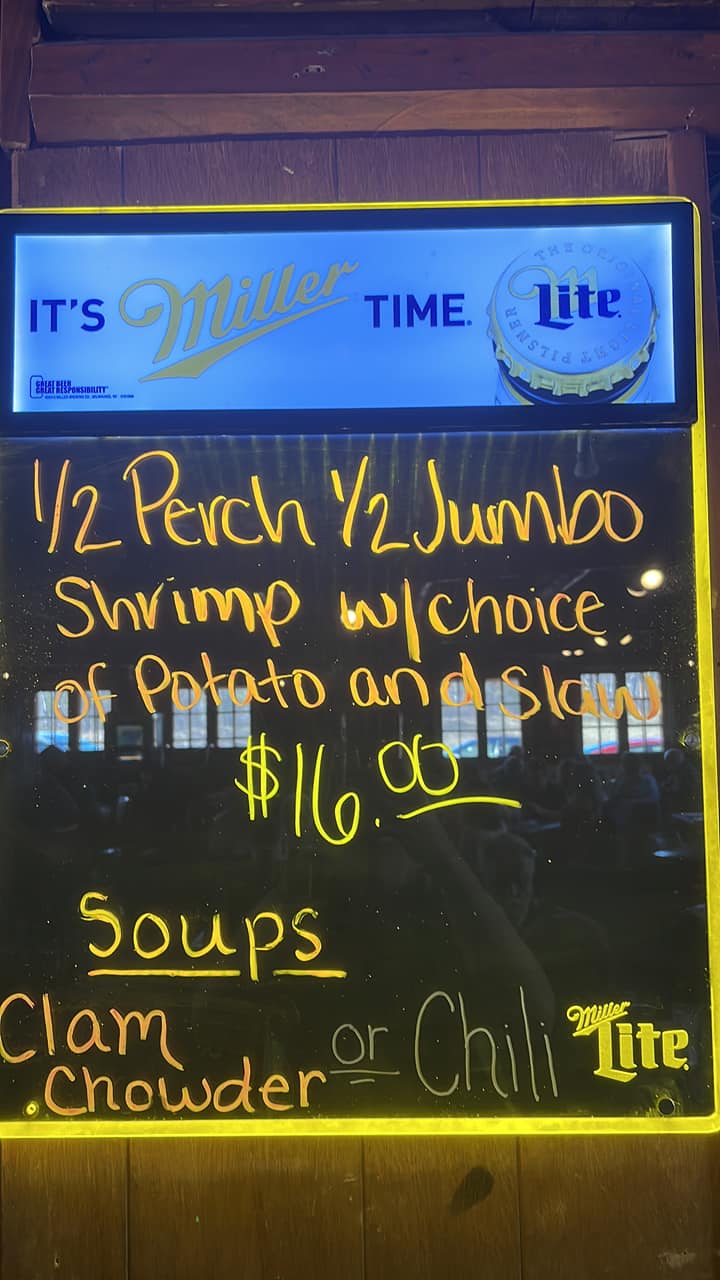 IT'S Miller TIME.
THE ORIGINAL LIGHT PILSNER
Lite
GREAT BEER
GREAT RESPONSIBILITY
1/2 Perch 1/2 Jumbo
Shrimp w/choice
of Potato and Slaw
$16.00
Soups
Clam
Chowder
or Chili
Miller
Lite